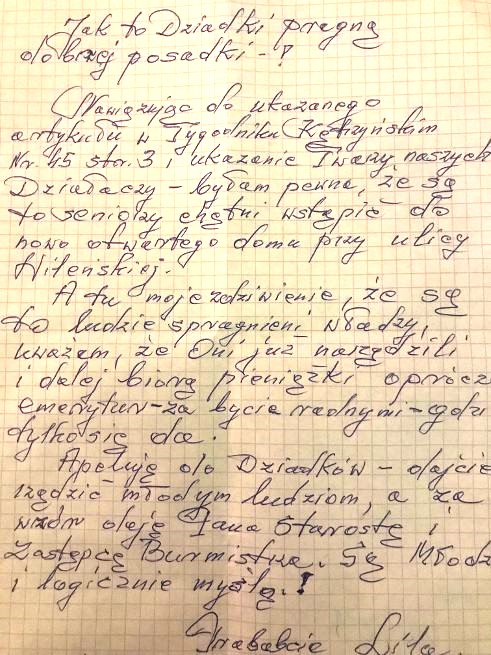 Jak to Dziadki pragną
dobrej posadki -!
Nawiązując do ukazanego
artykułu w Tygodniku Kętrzyńskim
Nr. 45 str. 3 i ukazanie Twarzy naszych
Działaczy - byłam pewna, że są
to seniorzy chętni wstąpić do
nowo otwartego domu przy ulicy
Wileńskiej.
A tu moje zdziwienie, że są
to ludzie spragnieni władzy,
uważam, że Oni już narządzili
i dalej biorą pieniążki oprócz
emerytur - za bycie radnymi - gdzi
tylko się da.
Apeluję do Dziadków - dajcie
rządzić młodym ludziom, a za
wzór daję Pana Starostę i
Zastępcę Burmistrza. Są Młodz
i logicznie myślą.!
Prababcia Lila